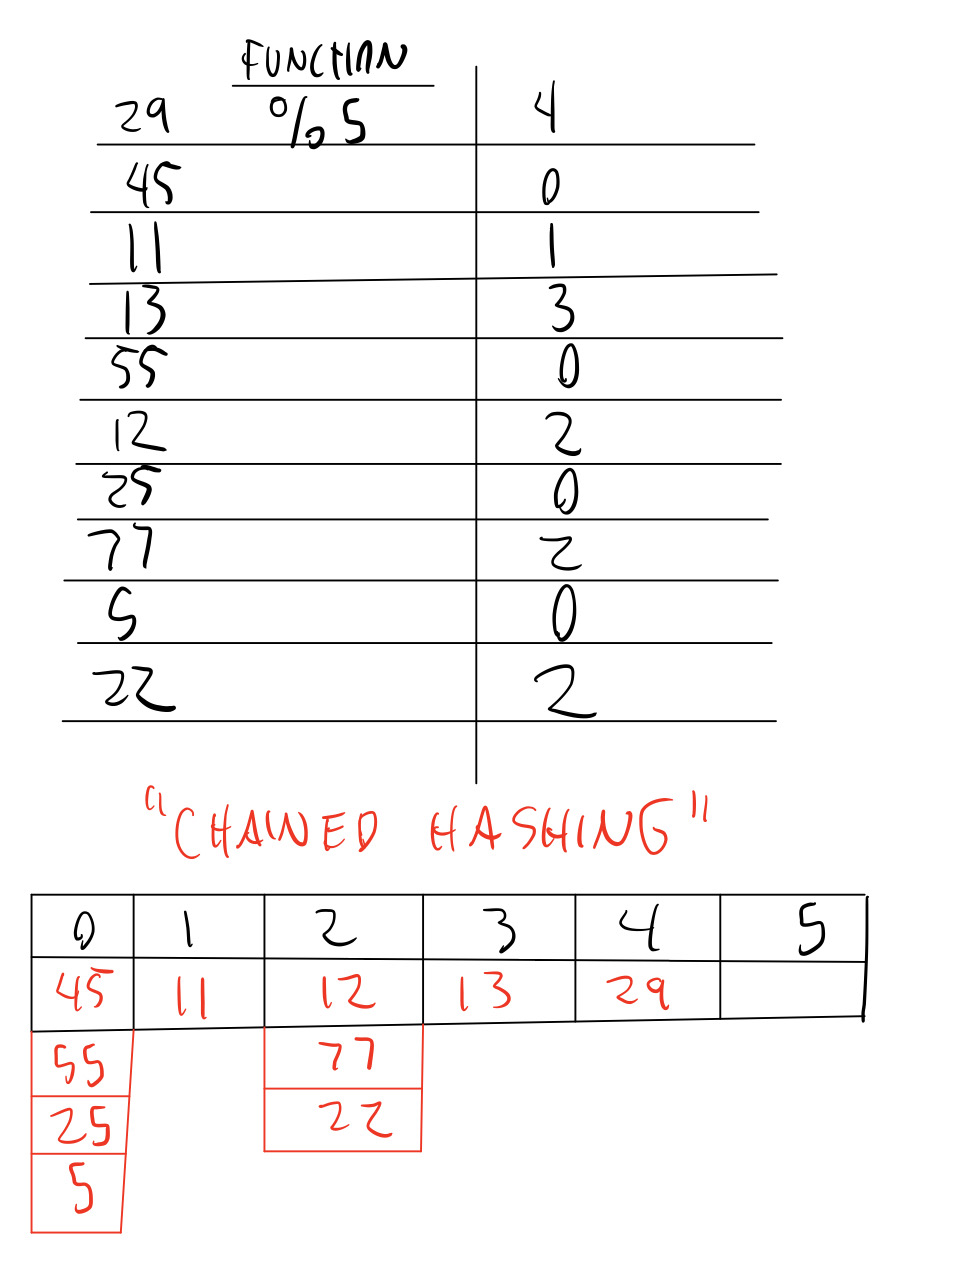 FUNCTION
29 % 5 4
45 0
11 1
13 3
55 0
12 2
25 0
77 2
5 0
22 2
"CHAINED HASHING"
0 1 2 3 4 5
45 11 12 13 29
55 77
25 22
5